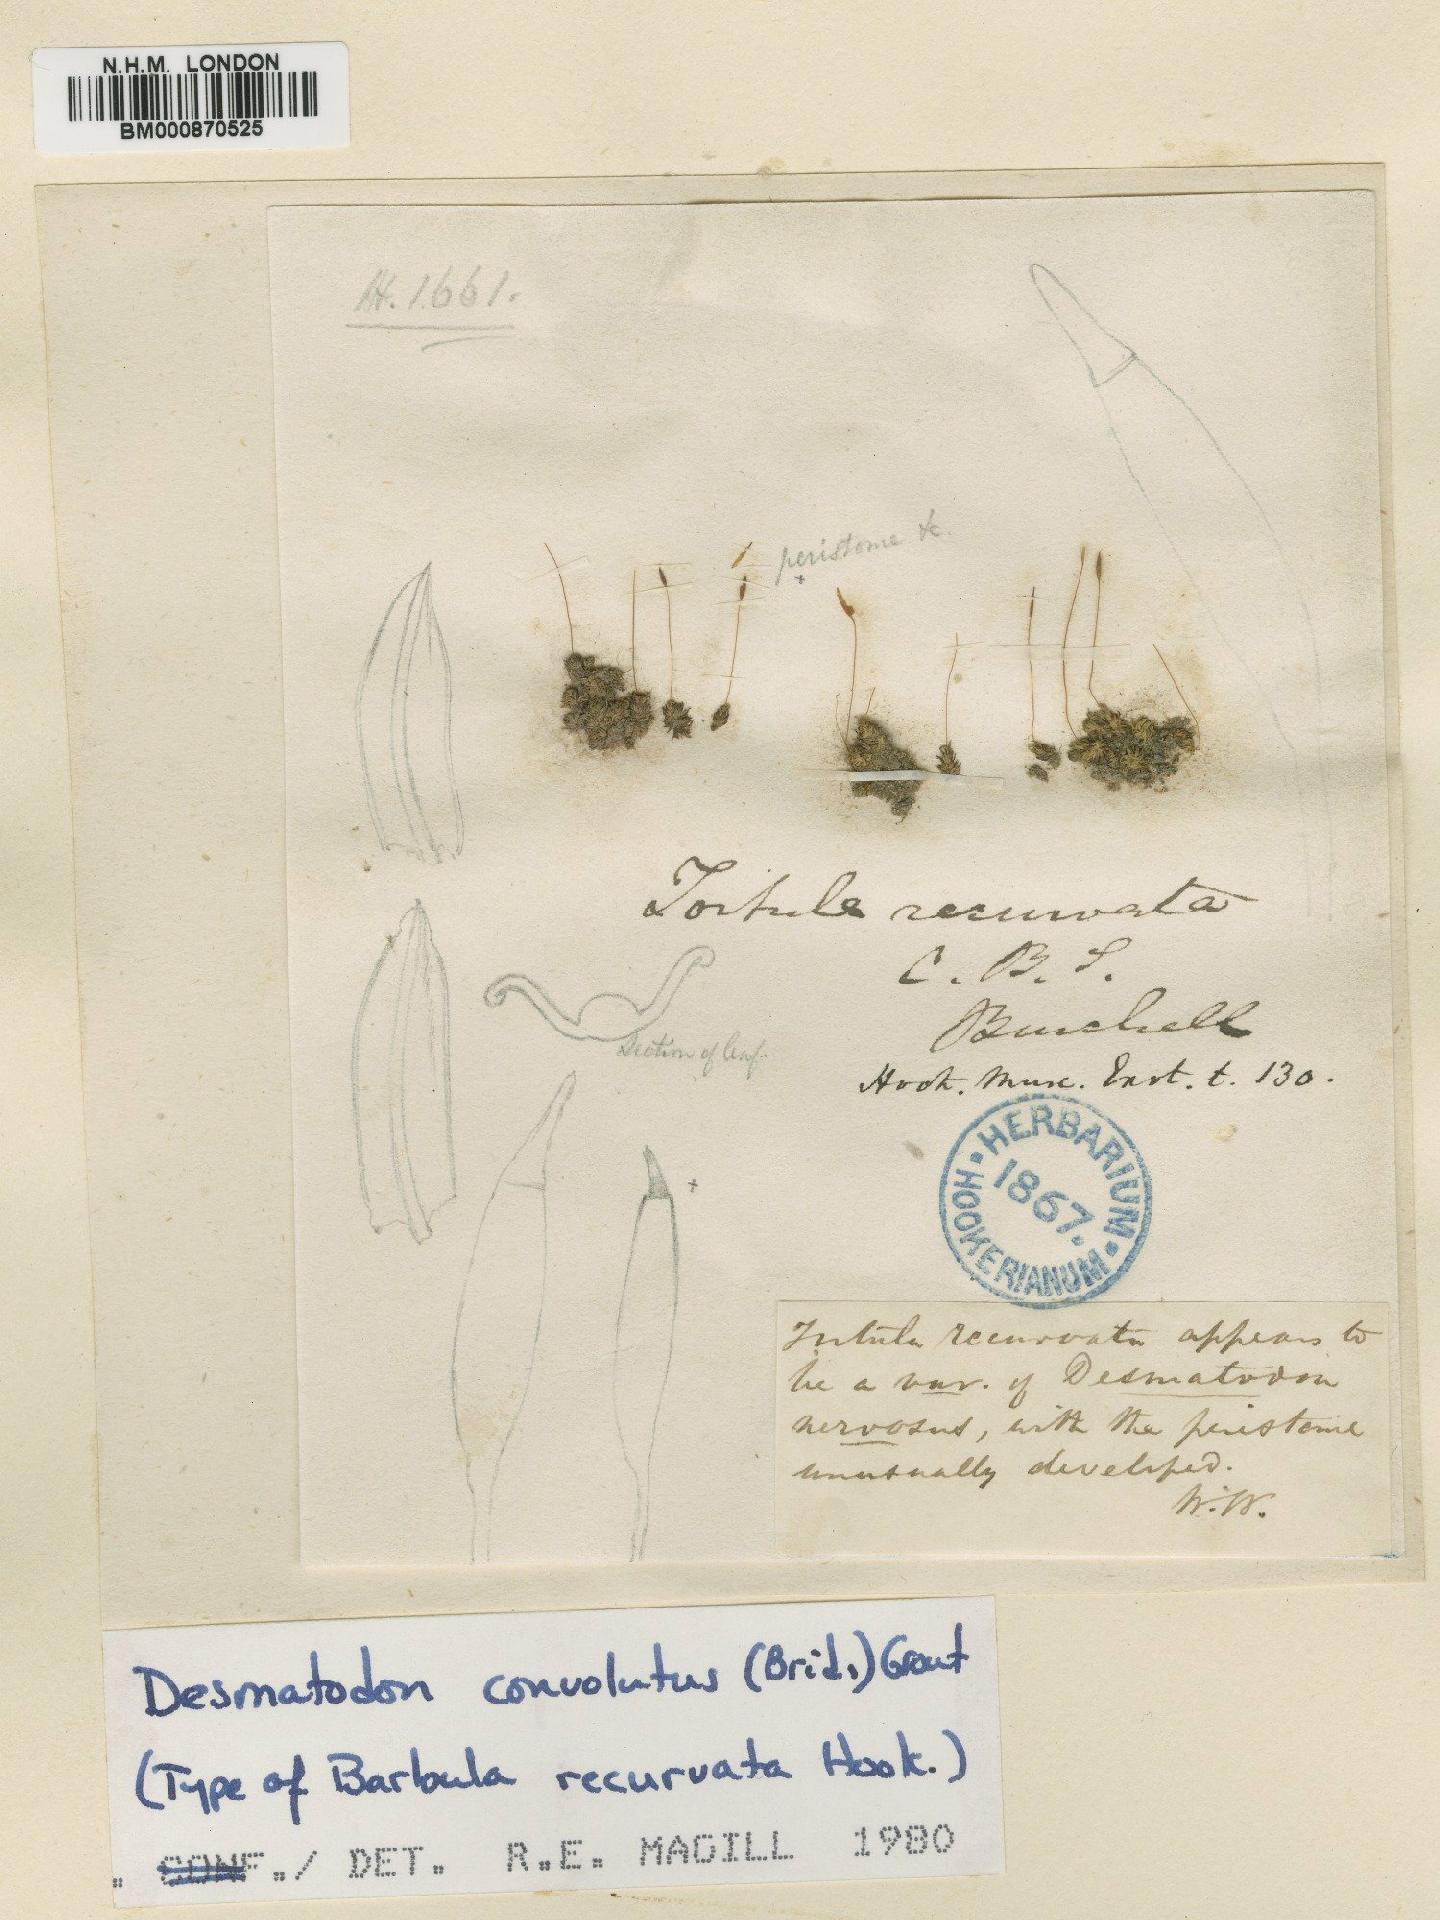 N.H.M. LONDON
BM000870525
H. 1661.
peristome &c.
Tortula recurvata
C. B. S.
Burchell
Hook. Musc. Exot. t. 130.
Section of leaf
HERBARIUM
1867.
HOOKERIANUM
Tortula recurvata appears to
be a var. of Desmatodon
nervosus, with the peristome
unusually developed.
W.W.
Desmatodon convolutus (Brid.) Grout
(Type of Barbula recurvata Hook.)
. CONF./ DET. R.E. MAGILL 1980